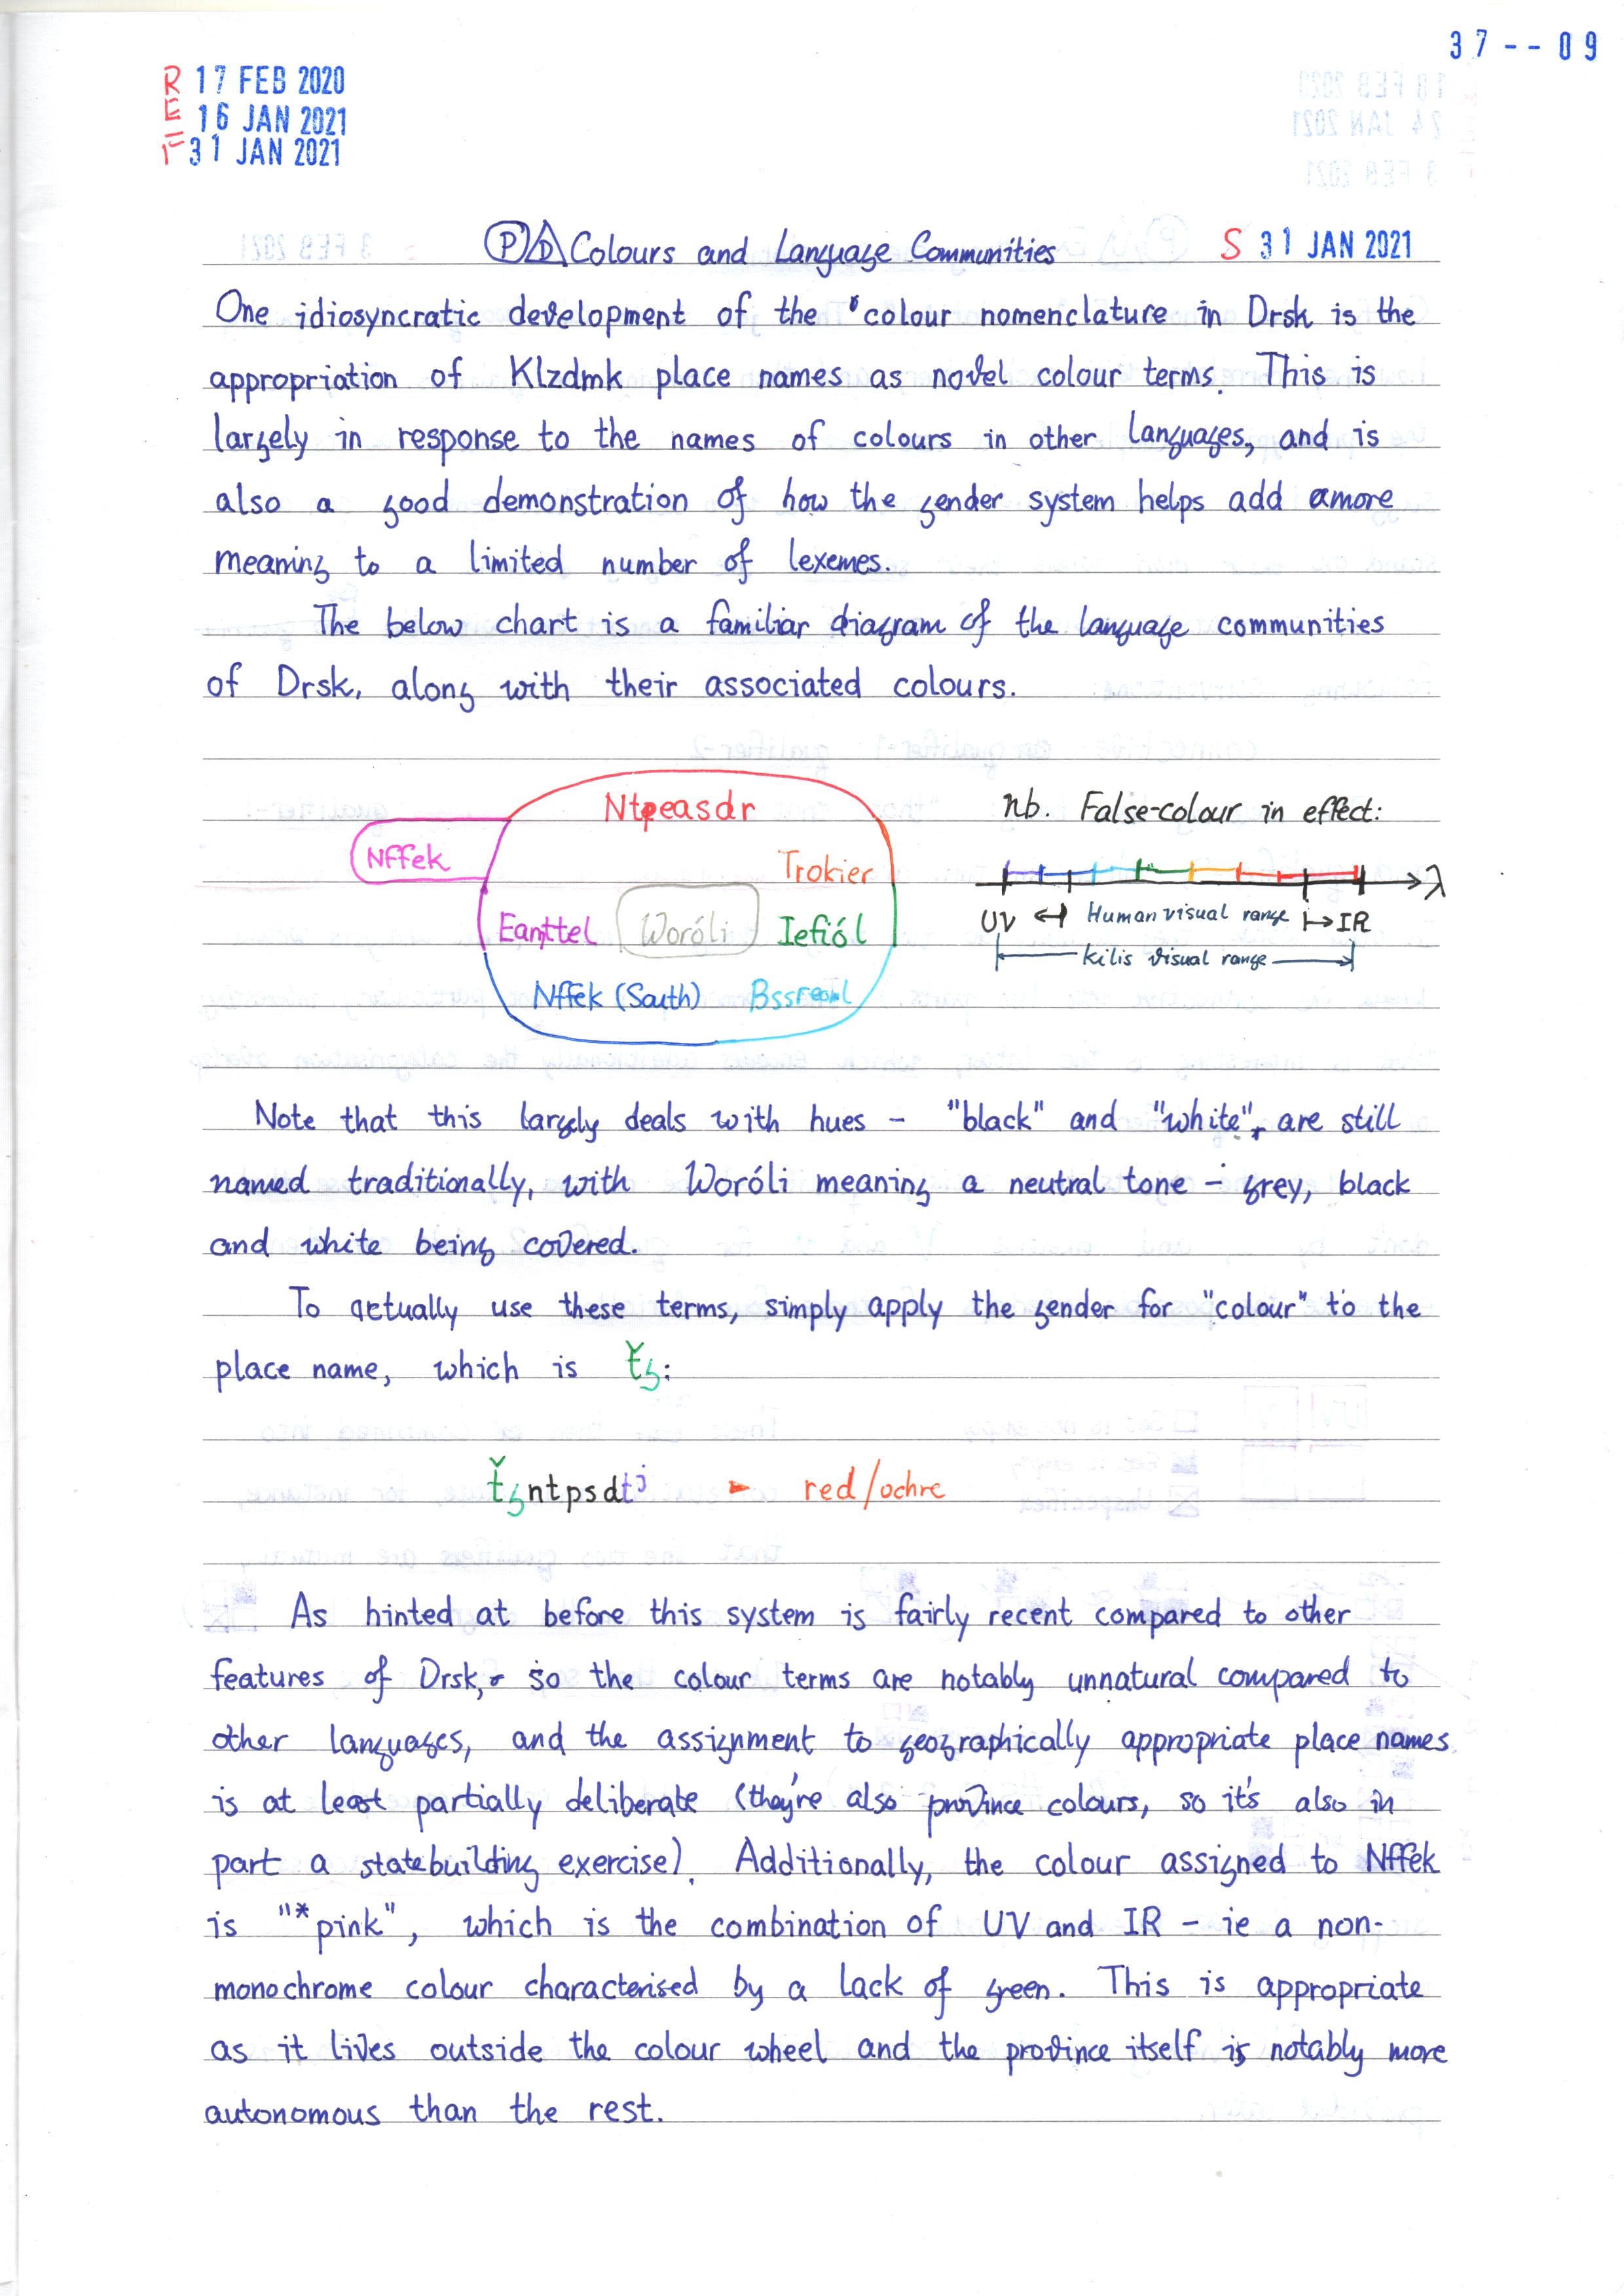 37--09
R 17 FEB 2020
E 16 JAN 2021
F 31 JAN 2021
P D Colours and Language Communities S 31 JAN 2021
One idiosyncratic development of the colour nomenclature in Drsk is the
appropriation of Klzdmk place names as novel colour terms. This is
largely in response to the names of colours in other languages, and is
also a good demonstration of how the gender system helps add more
meaning to a limited number of lexemes.
The below chart is a familiar diagram of the language communities
of Drsk, along with their associated colours.
Ntpeasdr
Nffek
Trokier
Eanttel Woróli Iefiól
Nffek (South)
nb. False-colour in effect:
λ
UV ↔ Human visual range ↦ IR
kilis visual range
Note that this largely deals with hues - "black" and "white", are still
named traditionally, with Woróli meaning a neutral tone - grey, black
and white being covered.
To actually use these terms, simply apply the gender for "colour" to the
place name, which is ťg:
ťgntpsdtʲ ► red/ochre
As hinted at before this system is fairly recent compared to other
features of Drsk, so the colour terms are notably unnatural compared to
other languages, and the assignment to geographically appropriate place names
is at least partially deliberate (they're also province colours, so it's also in
part a statebuilding exercise). Additionally, the colour assigned to Nffek
is "*pink", which is the combination of UV and IR - ie a non-
monochrome colour characterised by a lack of green. This is appropriate
as it lives outside the colour wheel and the province itself is notably more
autonomous than the rest.